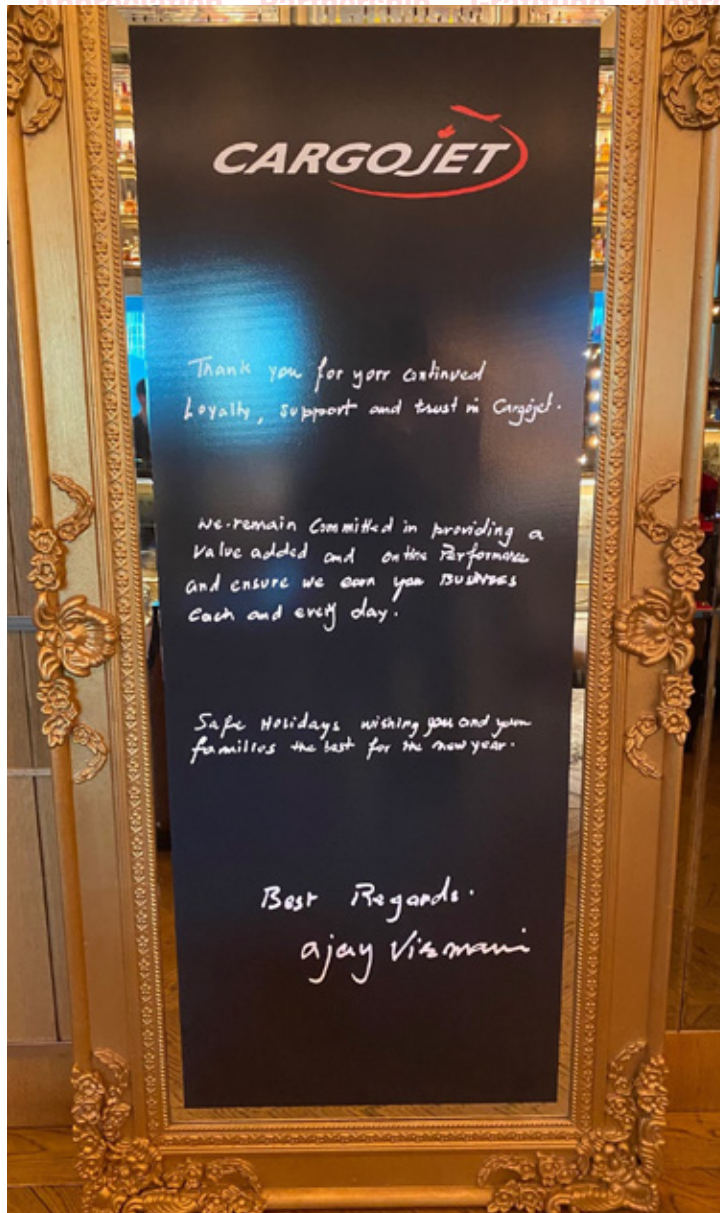 CARGOJET
Thank you for your continued
Loyalty, support and trust in Cargojet.
We remain Committed in providing a
Value added and on time Performance
and ensure we earn your BUSINESS
Each and every day.
Safe Holidays wishing you and your
families the best for the new year.
Best Regards.
ajay Virmani